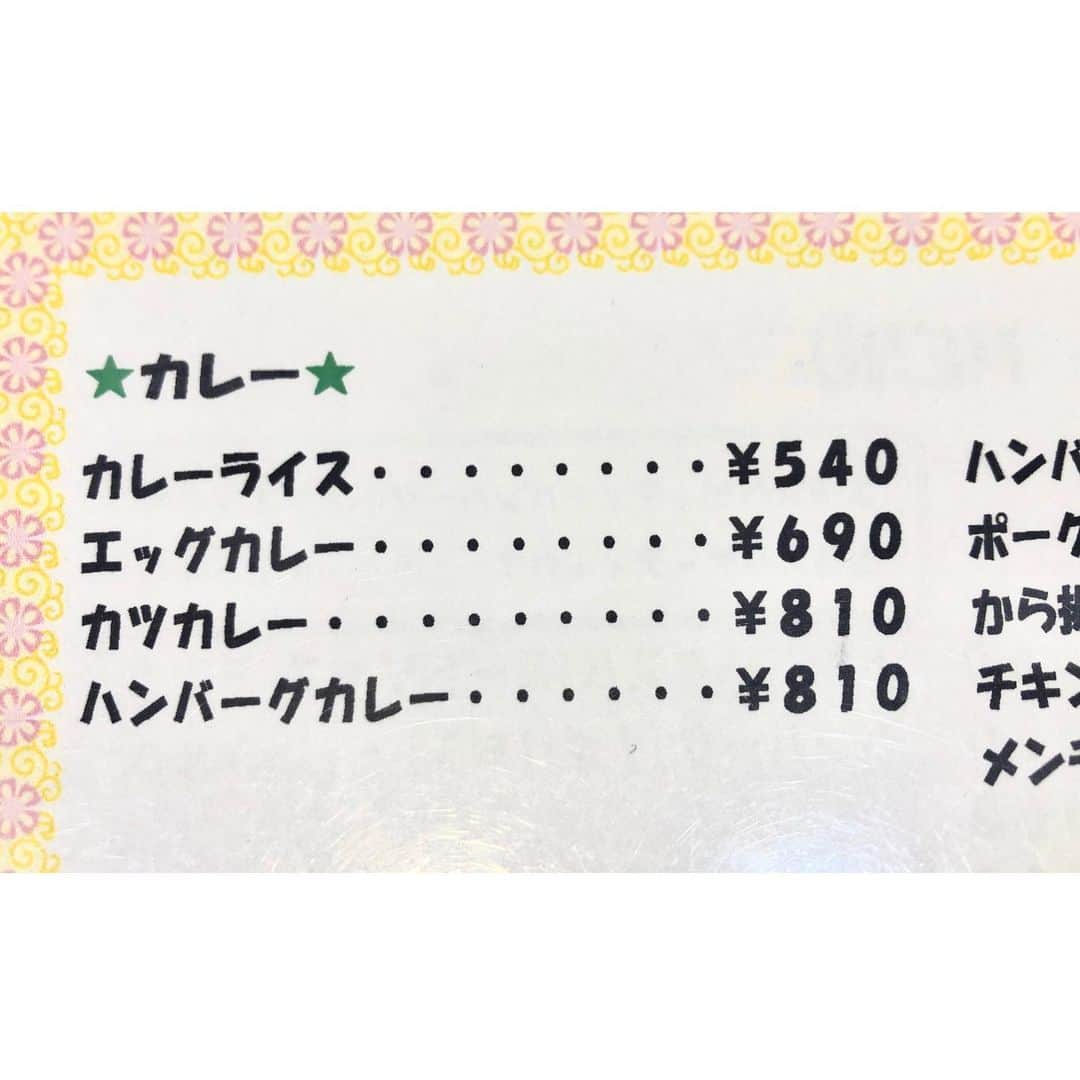 ★カレー★
カレーライス・・・・・・・・¥540
エッグカレー・・・・・・・・¥690
カツカレー・・・・・・・・・¥810
ハンバーグカレー・・・・・・¥810
ハンバ
ポーク
から揚
チキン
メンチ